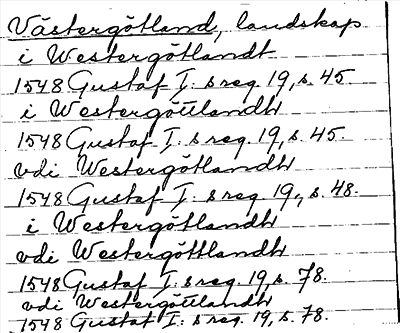 Västergötland, landskap
i Westergötlandt
1548 Gustaf I:s reg. 19, s. 45.
i Westergöttlandh
1548 Gustaf I:s reg. 19, s. 45.
vdi Westergötlandh
1548 Gustaf I:s reg. 19, s. 48.
i Westergötlandh
vdi Westergöttlandh
1548 Gustaf I:s reg. 19, s. 78.
vdi Westergötlandh
1548 Gustaf I:s reg. 19, s. 78.